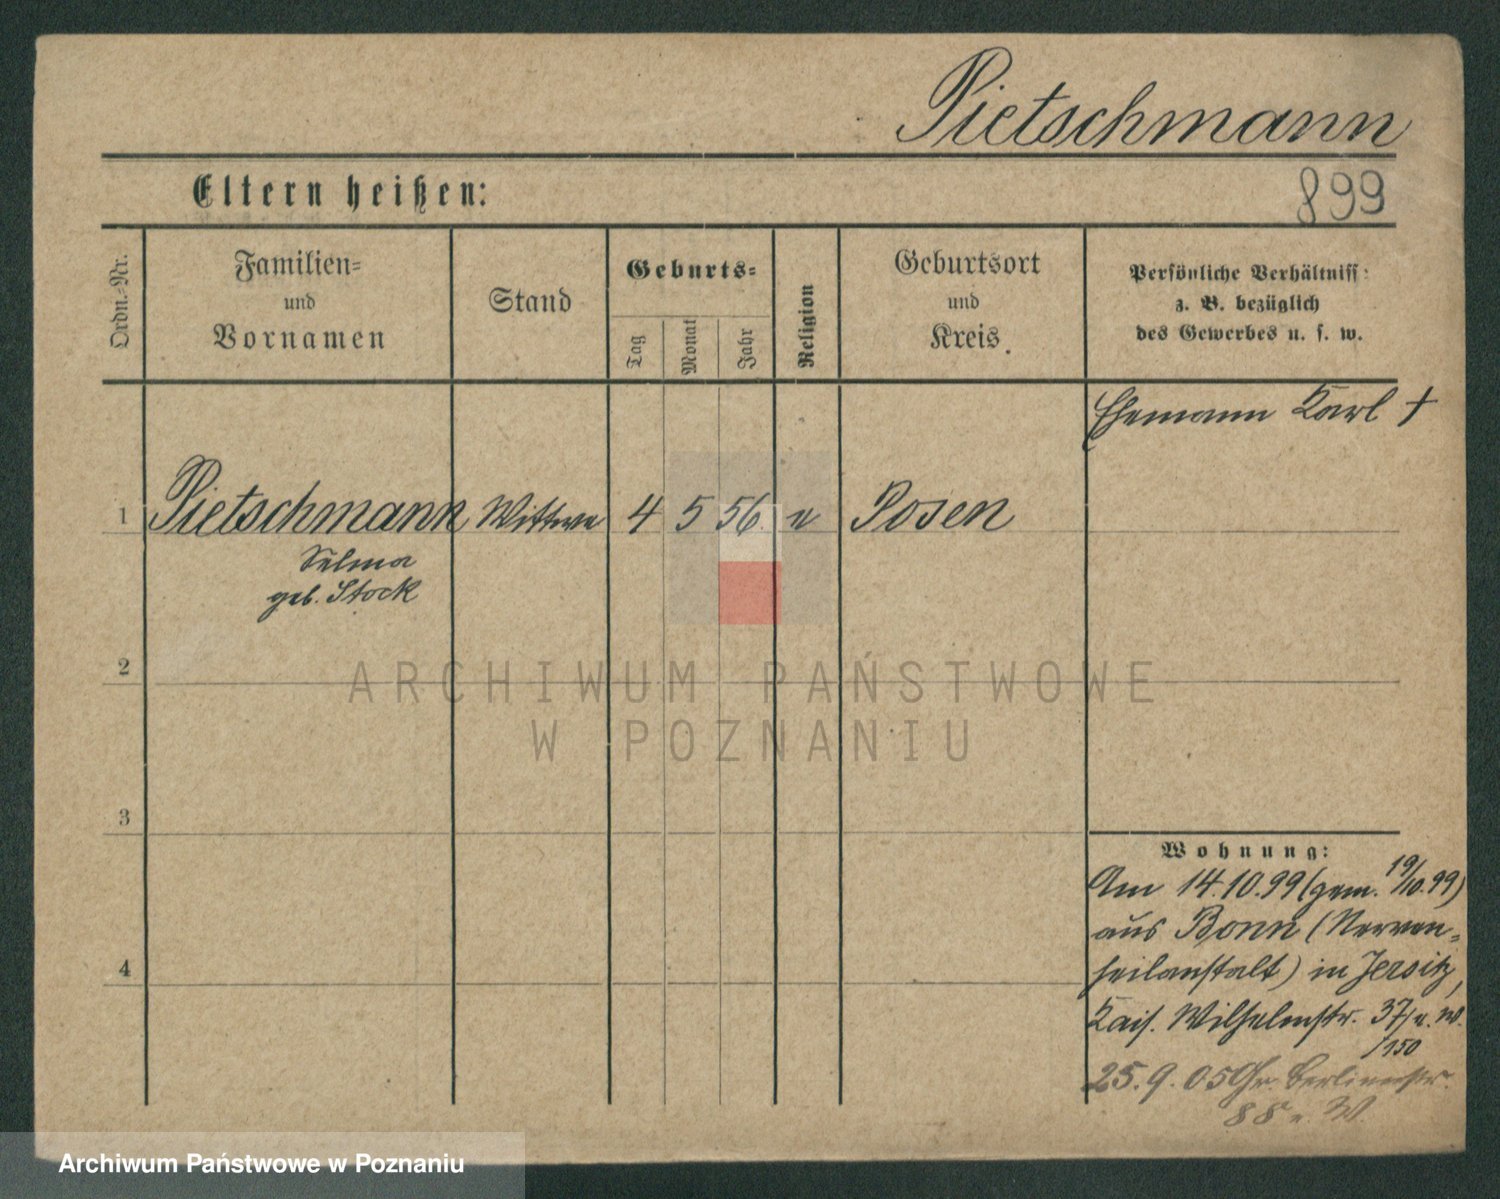 Pietschmann
Eltern heißen:
899
Ordn.-Nr.
Familien-
und
Vornamen
Stand
Geburts-
Tag
Monat
Jahr
Religion
Geburtsort
und
Kreis.
Persönliche Verhältniss:
z. B. bezüglich
des Gewerbes u. s. w.
Ehemann Karl †
1 Pietschmann Wittwe 4 5 56. e Posen
Selma
geb. Stock
2
ARCHIWUM PAŃSTWOWE
W POZNANIU
3
4
Wohnung:
Am 14.10.99 (gem. 19/10.99)
aus Bonn (Nerven-
heilanstalt) in Jersitz,
Kais. Wilhelmstr. 37/e. W.
/150
25.9.05 Gr. Berlinerstr.
88 e. W.
Archiwum Państwowe w Poznaniu